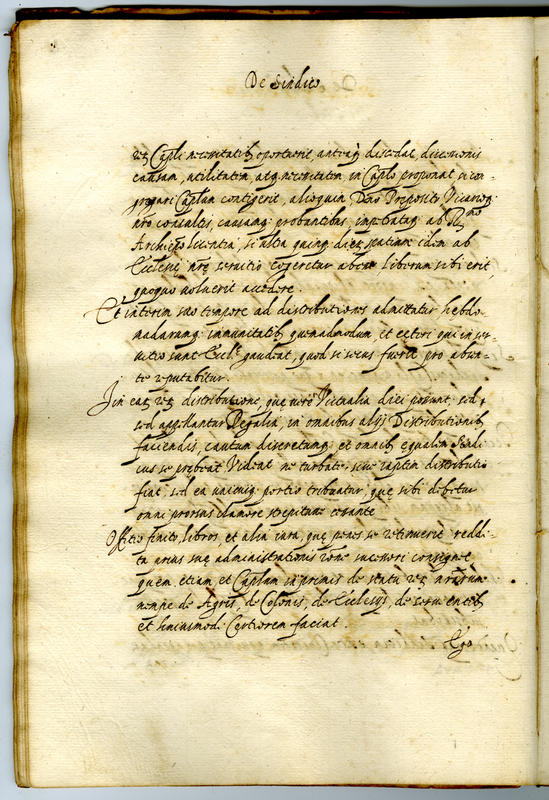 De Sindico
rẽ Capli necessitatib, oportuerit, antequã discedat, discessionis
causam, utilitatem, atq necessitatem in Caplo proponat si con-
gregari Caplum contigerit, alioquin Dno Preposito Vicarioq
nro consultis, causamq probantibus, impetrataq ab Rmo
Archiepo licentia, si ultra quinq dies spatium idem ab
Ecclesię nrę servitio cogeretur abesse liberum sibi erit,
quoquo voluerit accedere.
Et interim suo tempore ad distributiones admittatur hebdo-
madarumq immunitatib quemadmodum, et ceteri qui in ser-
vitio sunt Eccle gaudeat, quod si secus fuerit pro absen-
te reputabitur.
In ea distributione, quę verè Victualia dici possunt, sed
sed appellantur Regalia, in omnibus alijs Distributionib
faciendis, cautum discretumq et omnib equalem Sindi-
cus se prebeat Videat ne turbatè, sive raptim distributio
fiat, sed ea unicuiq portio tribuatur, quę sibi debetur
omni prorsus clamore strepituve cessante
Officio finito, libros, et alia iura, quę penes se retinuerit reddi-
ta prius suę administrationis rõne successori consignet
quem etiam, et Caplum in primis de statu rẽ nrarum
nempe de Agris, de Colonis, de Ecclesijs, de servientib
et huiusmodi Certiorem faciat.
Ego